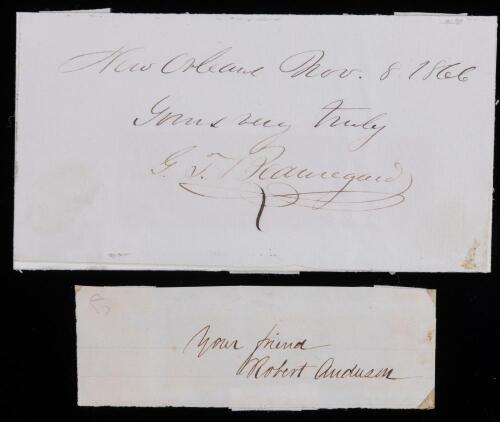 New Orleans Nov. 8 1866
Yours very truly
G. T. Beauregard
Your friend
Robert Anderson